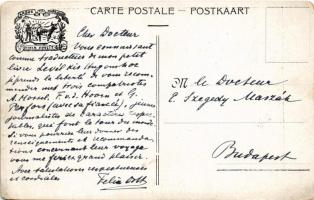 CARTE POSTALE - POSTKAART
Cher Docteur
Vous connaissant
comme traducteur de mon petit
livre
je
prends la liberté de vous recom-
mander mes trois compatriotes
A. Hossel, F. v. d. Hoorn et G.
(avec sa fiancée), jeunes
journalistes de caractère
qui font le tour du monde.
Si vous pourriez leur donner des
renseignements et recommanda-
tions concernant leur voyage
vous me feriez grand plaisir.
Avec salutations respectueuses
et cordiales
Felix Ortt
M. le Docteur
E. Szegedy Maszák
Budapest